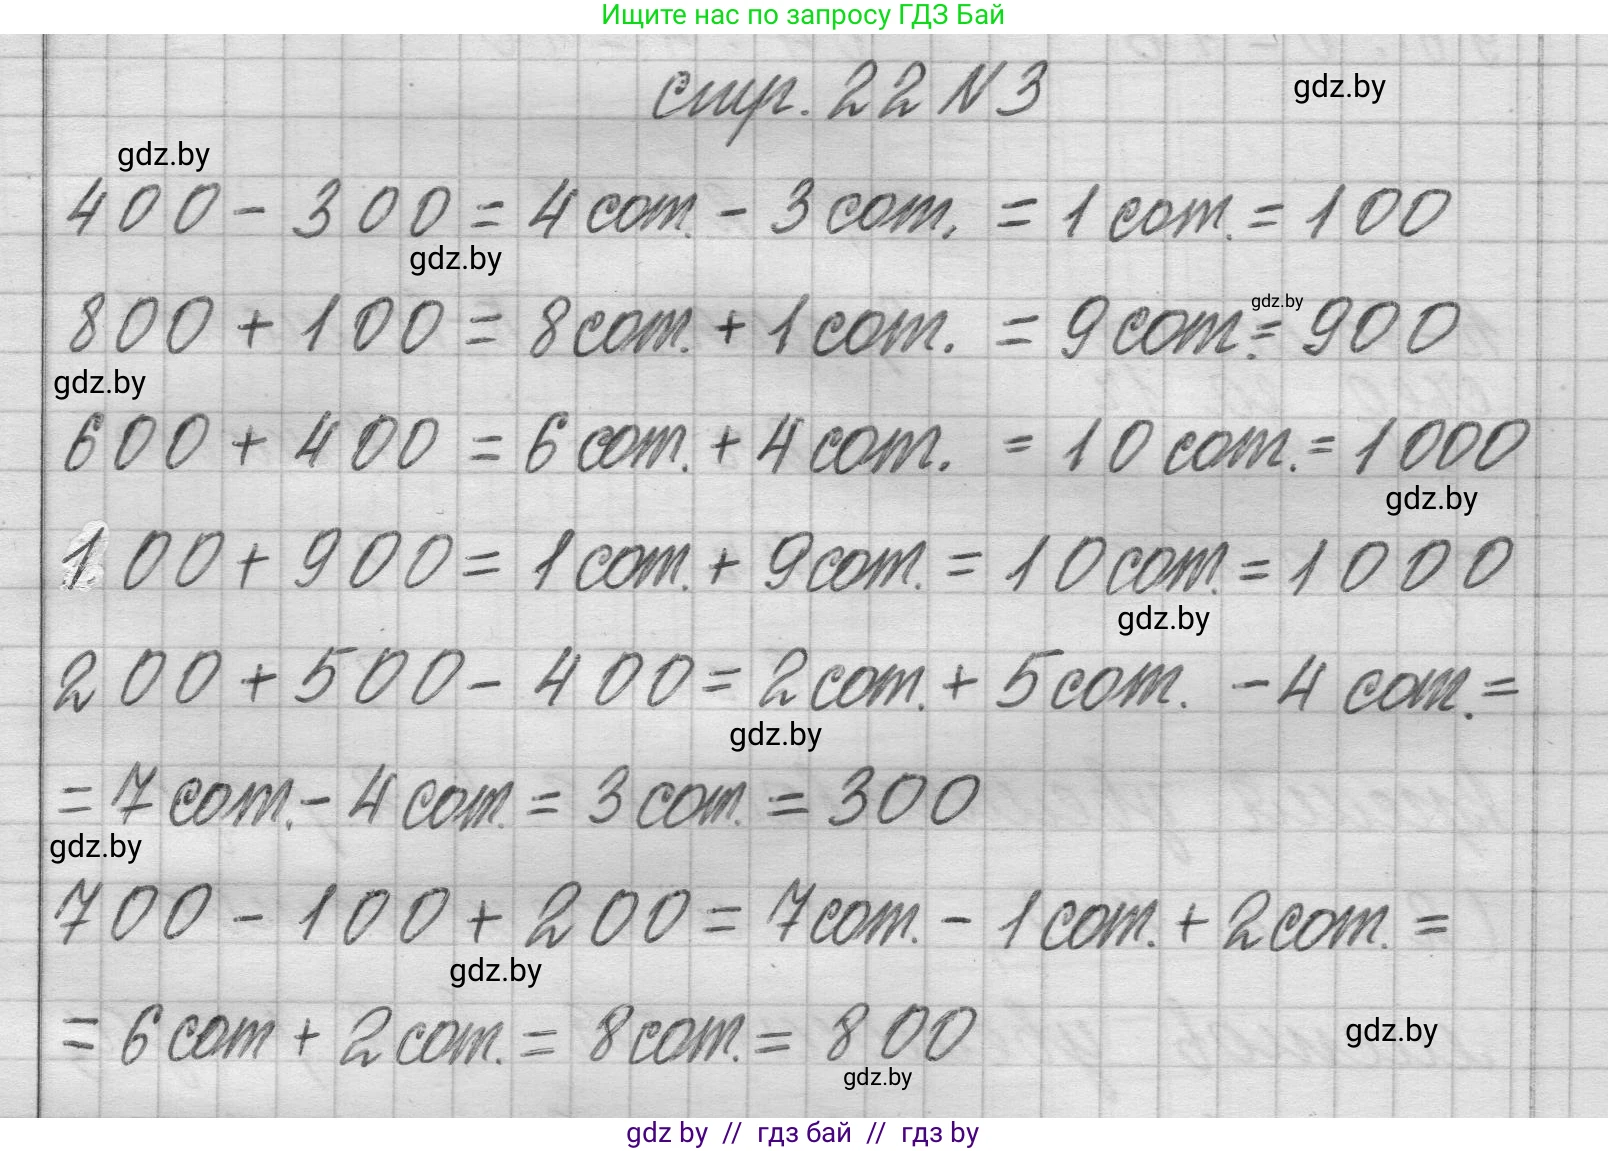 Ищите нас по запросу ГДЗ Бай
стр. 22 N 3
gdz.by
gdz.by
400 - 300 = 4 сот. - 3 сот. = 1 сот. = 100
gdz.by
gdz.by
800 + 100 = 8 сот. + 1 сот. = 9 сот. = 900
gdz.by
600 + 400 = 6 сот. + 4 сот. = 10 сот. = 1000
gdz.by
100 + 900 = 1 сот. + 9 сот. = 10 сот. = 1000
gdz.by
200 + 500 - 400 = 2 сот. + 5 сот. - 4 сот. =
gdz.by
= 7 сот. - 4 сот. = 3 сот. = 300
gdz.by
700 - 100 + 200 = 7 сот. - 1 сот. + 2 сот. =
gdz.by
= 6 сот + 2 сот. = 8 сот. = 800
gdz.by
gdz.by
gdz by // гдз бай // гдз by